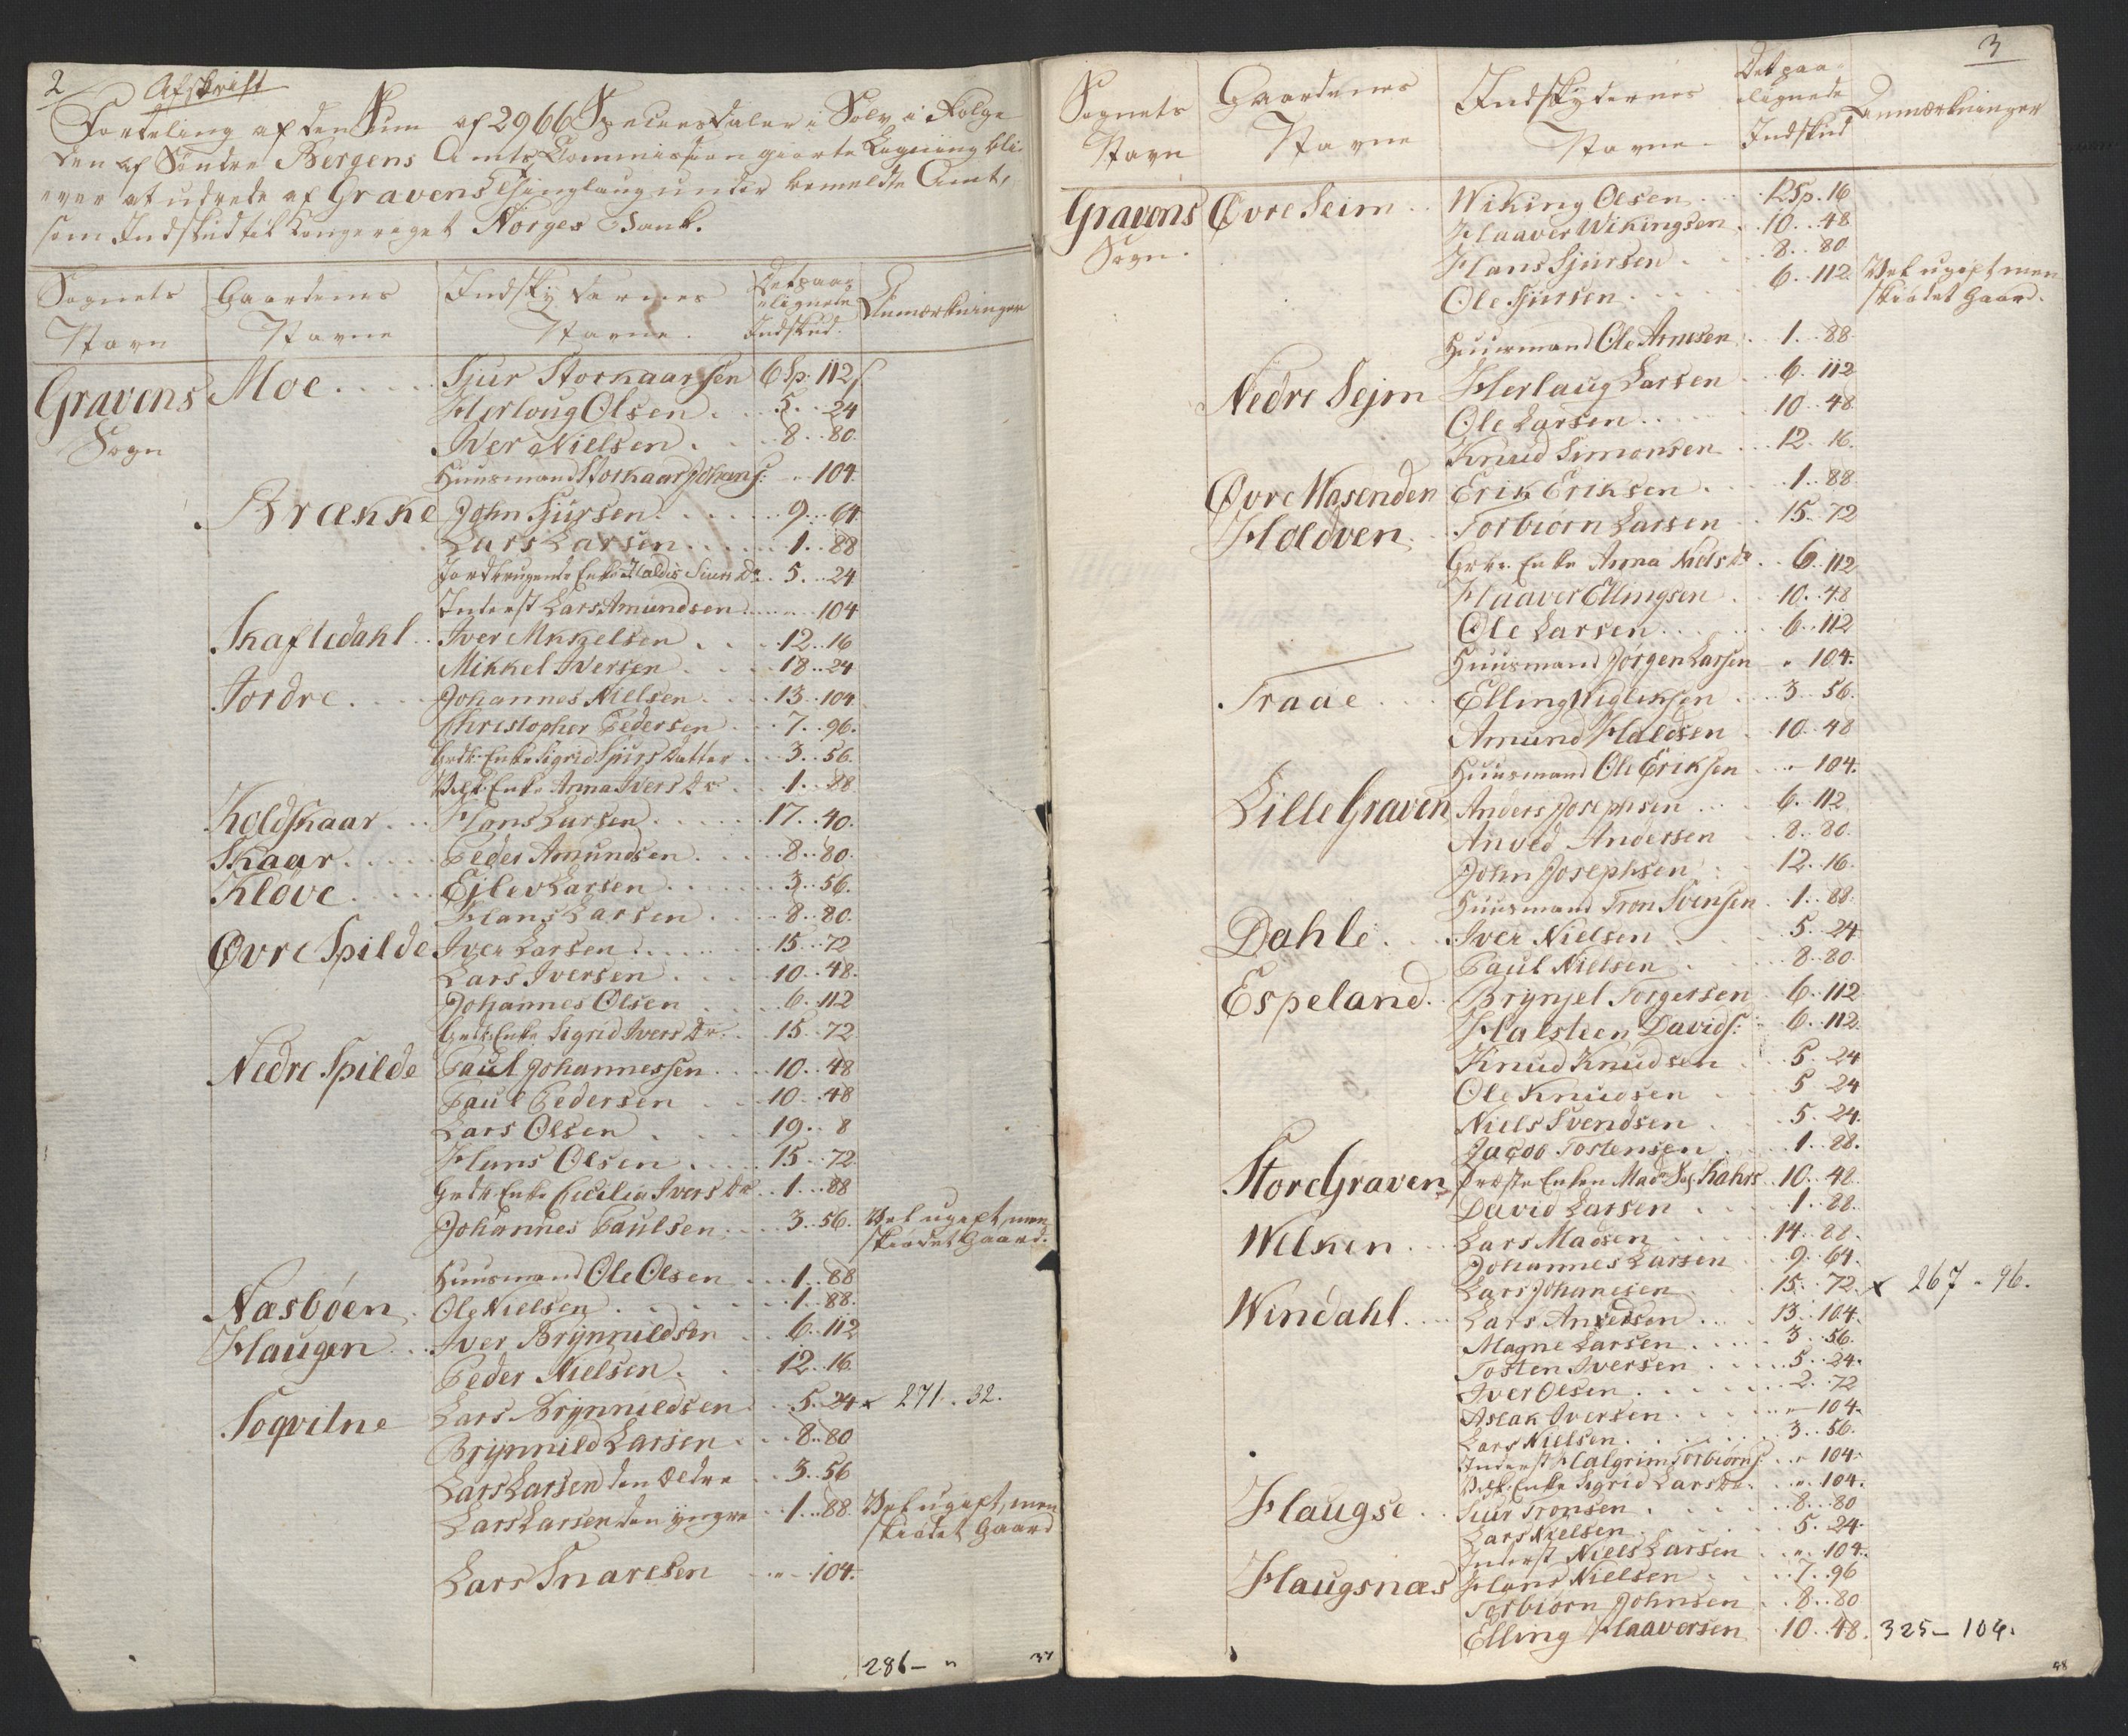 2
Afskrift
Fordeling af den Sum af 2966 Speciesdaler i Sölv i Følge
den af Söndre Bergens Amts Commission giorte Ligning bli-
ever at udrede af Gravens Thinglaug under bemeldte Amt,
som Indskud til Kongeriget Norges Bank.
Sognets Navn Gaardenes Navne Indskydernes Navne. Det paa-lignede Indskud. Anmærkninger
Gravens Sogn Moe .... Sjur Storkaarsen 6 Sp. 112 s
Herloug Olsen . 5 . 24
Iver Nielsen . 8 . 80.
Huusmand Storkaar Johans: " 104.
Brække John Sjursen . 9 . 64
Lars Larsen . 1 . 88
Jordbrugende Enke Haldis Siurs Dr. 5 . 24
Inderst Lars Amundsen 104
Skafledahl .. Iver Mikkelsen . 12 . 16
Mikkel Iversen . 18 . 24
Fordre . Johannes Nielsen . 13 . 104
Christopher Pedersen . 7 . 96.
Grdb. Enke Sigrid Sjurs Datter . 3 . 56.
Enke Anna Ivers Dr . 1 . 88
Koldskaar ... Hans Larsen . 17 . 40.
Skaar .... Peder Amundsen . 8 . 80.
Klöve .... Ejlev Larsen . 3 . 56.
Hans Larsen . 8 . 80.
Øvre Spilde Iver Larsen . 15 . 72
Lars Iversen . 10 . 48.
Johannes Olsen . 6 . 112
Grdb. Enke Sigrid Ivers Dr. 15 . 72
Nedre Spilde Paul Johannessen . 10 . 48
Paul Pedersen . 10 . 48
Lars Olsen . 19 . 8
Hans Olsen . 15 . 72
Grdb. Enke Cecilia Ivers Dr . 1 . 88
Johannes Paulsen . 3 . 56. Vel ugift, men
skiödet Gaard.
Huusmand Ole Olsen . 1 . 88
Næsböen . Ole Nielsen . 1 . 88.
Haugen .. Iver Brynnildsen . 6 . 112
Peder Nielsen . 12 . 16
Toqvitne Lars Brynnildsen . 5 . 24 x 271 . 32.
Brynnild Larsen . 8 . 80
Lars Larsen den ældre . 3 . 56
Lars Larsen den yngre . 1 . 88. Vel ugift, men
skiödet Gaard
Lars Snaresen " 104.
286 — "
37
3
Sognets Navn Gaardenes Navne Indskydernes Navne. Det paa-lignede Indskud Anmærkninger
Gravens Sogn. Øvre Seim .. Wiking Olsen . 12 Sp. 16
Haaver Wikingsen . 10 . 48
Hans Sjursen . 8 . 80
Ole Sjursen . 6 . 112 Vel ugift men
skiödet Gaard.
Huusmand Ole Arnesen . 1 . 88.
Nedre Sejm Herlaug Larsen . 6 . 112
Ole Larsen . 10 . 48
Knud Simonsen . 12 . 16.
Øvre Wasenden Erik Eriksen . 1 . 88.
Holdven . Torbiörn Larsen . 15 . 72
Grbr. Enke Anna Niels Dr . 6 . 112
Haaver Ellingsen . 10 . 48
Ole Larsen . 6 . 112
Huusmand Jörgen Larsen " 104.
Traae ... Elling Wigleksen . 3 . 56.
Amund Haldsen . 10 . 48
Huusmand Ole Eriksen " 104.
Lille Graven Anders Josephsen . 6 . 112
Anved Andersen . 8 . 80.
John Josephsen . 12 . 16.
Huusmand Tron Svensen . 1 . 88.
Dahle .... Iver Nielsen . 5 . 24
Paul Nielsen . 8 . 80.
Espeland . Brynjel Torgersen . 6 . 112
Halsteen Davids: 6 . 112.
Knud Knudsen . 5 . 24
Ole Knudsen . 5 24
Niels Svendsen . 5 . 24.
Jacob Tostensen . 1 . 88.
Store Graven Præste Enken Mad. Sal. Kahrs . 10 . 48.
David Larsen . 1 . 88.
Welken ... Lars Madsen . 14 . 88.
Johannes Larsen . 9 . 64.
Lars Johannesen . 15 . 72. x 267 . 96.
Windahl ... Lars Andersen . 13 . 104.
Magne Larsen . 3 . 56.
Tosten Iversen . 5 . 24.
Iver Olsen . 2 . 72
Aslak Iversen " 104.
Lars Nielsen . 3 . 56.
Inderst Halgrim Torbiörns " 104.
Enke Sigrid Lars Dr. " 104.
Haugse .. Siur Tronsen . 8 . 80
Lars Nielsen . 5 . 24.
Inderst Niels Larsen " 104.
Haugsnæs Hans Nielsen . 7 . 96
Torbiörn Johnsen . 8 . 80
Elling Haaversen . 10 . 48. 325 — 104.
98